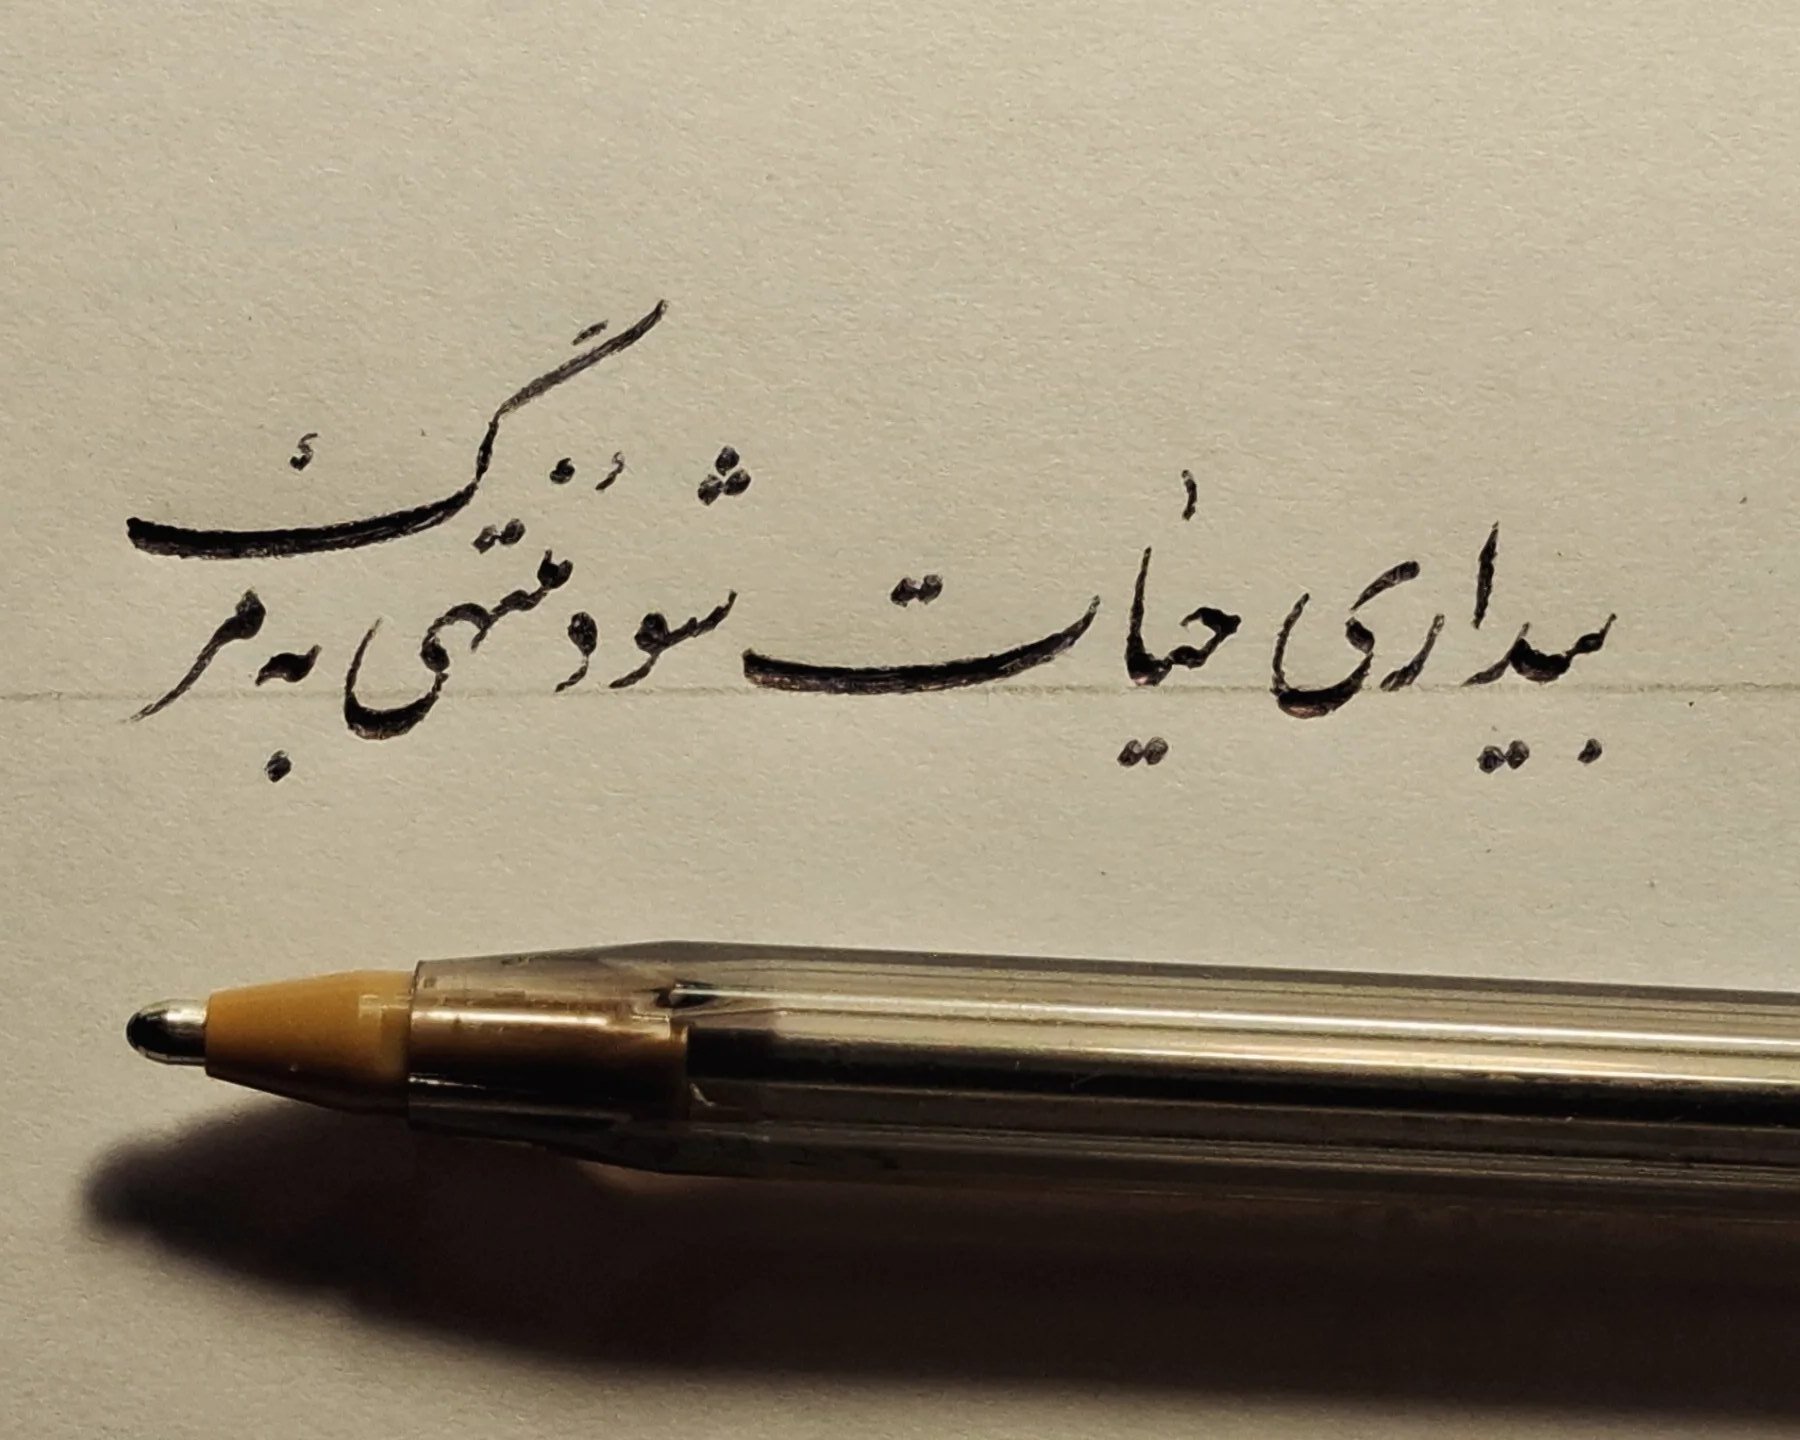 بیداری حیات شود منتهی به مرگ